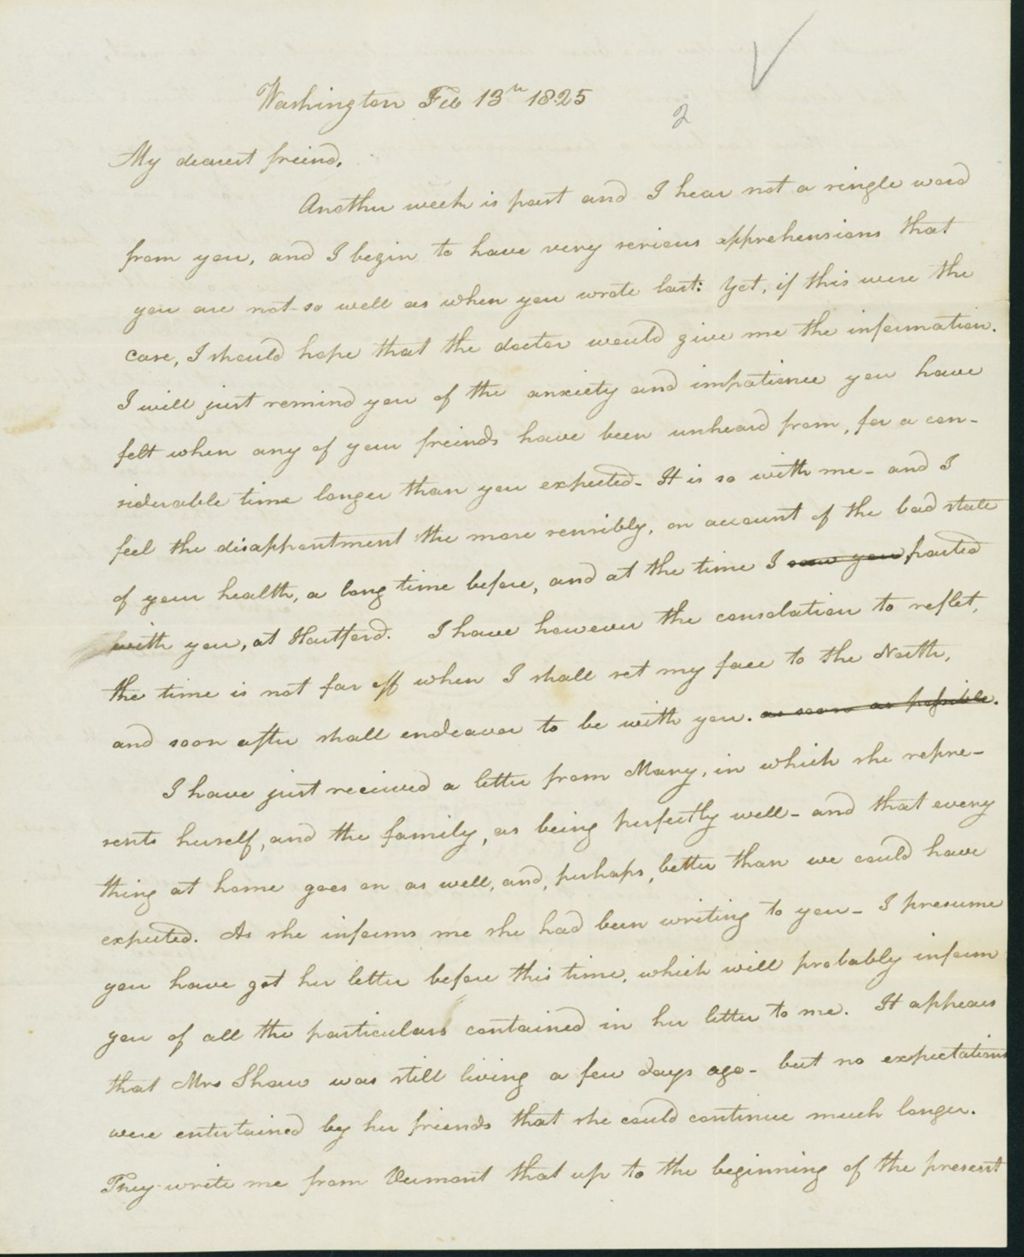 Washington Feb 13th 1825
2
My dearest freind,
Another week is past and I hear not a single word
from you, and I begin to have very serious apprehensions that
you are not so well as when you wrote last: Yet, if this were the
case, I should hope that the doctor would give me the information.
I will just remind you of the anxiety and impatience you have
felt when any of your freinds have been unheard from, for a con-
siderable time longer than you expected - It is so with me - and I
feel the disappointment the more sensibly, on account of the bad state
of your health, a long time before, and at the time I saw you parted
with you, at Hartford. I have however the consolation to reflect,
the time is not far off when I shall set my face to the North,
and soon after shall endeavor to be with you. as soon as possible.
I have just received a letter from Mary, in which she repre-
sents herself, and the family, as being perfectly well - and that every
thing at home goes on as well, and, perhaps, better than we could have
expected. As she informs me she had been writing to you - I presume
you have got her letter before this time, which will probably inform
you of all the particulars contained in her letter to me. It appears
that Mrs Shaw was still living a few days ago - but no expectations
were entertained by her friends that she could continue much longer.
They write me from Vermont that up to the beginning of the present